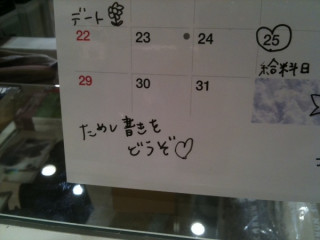 デート
22 23 24 25
給料日
29 30 31
ためし書きを
どうぞ♡